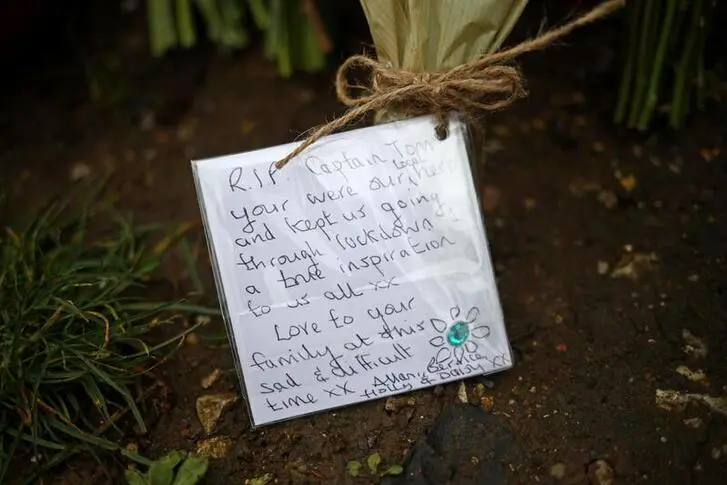 R.I.P. Captain Tom
local
your were our hero
and kept us going
through lockdown
a true inspiration
to us all xx
Love to your
family at this
sad & difficult
time xx Allan, Bernice
Holly & Daisy xx